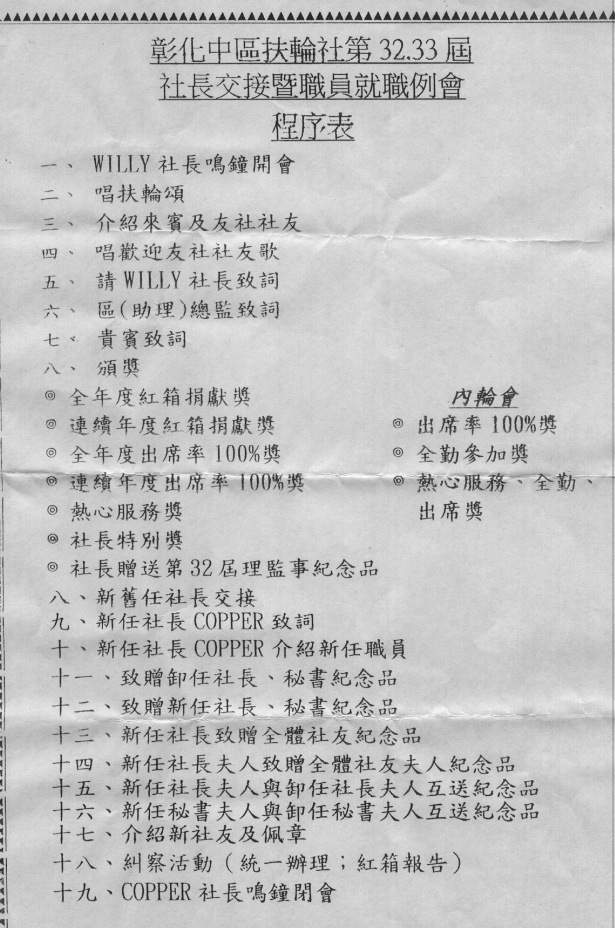 彰化中區扶輪社第 32.33 屆
社長交接暨職員就職例會
程序表
一、 WILLY 社長鳴鐘開會
二、 唱扶輪頌
三、 介紹來賓及友社社友
四、 唱歡迎友社社友歌
五、 請 WILLY 社長致詞
六、 區(助理)總監致詞
七、 貴賓致詞
八、 頒獎
◎ 全年度紅箱捐獻獎
◎ 連續年度紅箱捐獻獎
◎ 全年度出席率 100%獎
◎ 連續年度出席率 100%獎
◎ 熱心服務獎
◎ 社長特別獎
◎ 社長贈送第 32 屆理監事紀念品
內輪會
◎ 出席率 100%獎
◎ 全勤參加獎
◎ 熱心服務、全勤、
出席獎
八、新舊任社長交接
九、新任社長 COPPER 致詞
十、新任社長 COPPER 介紹新任職員
十一、致贈卸任社長、秘書紀念品
十二、致贈新任社長、秘書紀念品
十三、新任社長致贈全體社友紀念品
十四、新任社長夫人致贈全體社友夫人紀念品
十五、新任社長夫人與卸任社長夫人互送紀念品
十六、新任秘書夫人與卸任秘書夫人互送紀念品
十七、介紹新社友及佩章
十八、糾察活動（統一辦理；紅箱報告）
十九、COPPER 社長鳴鐘閉會